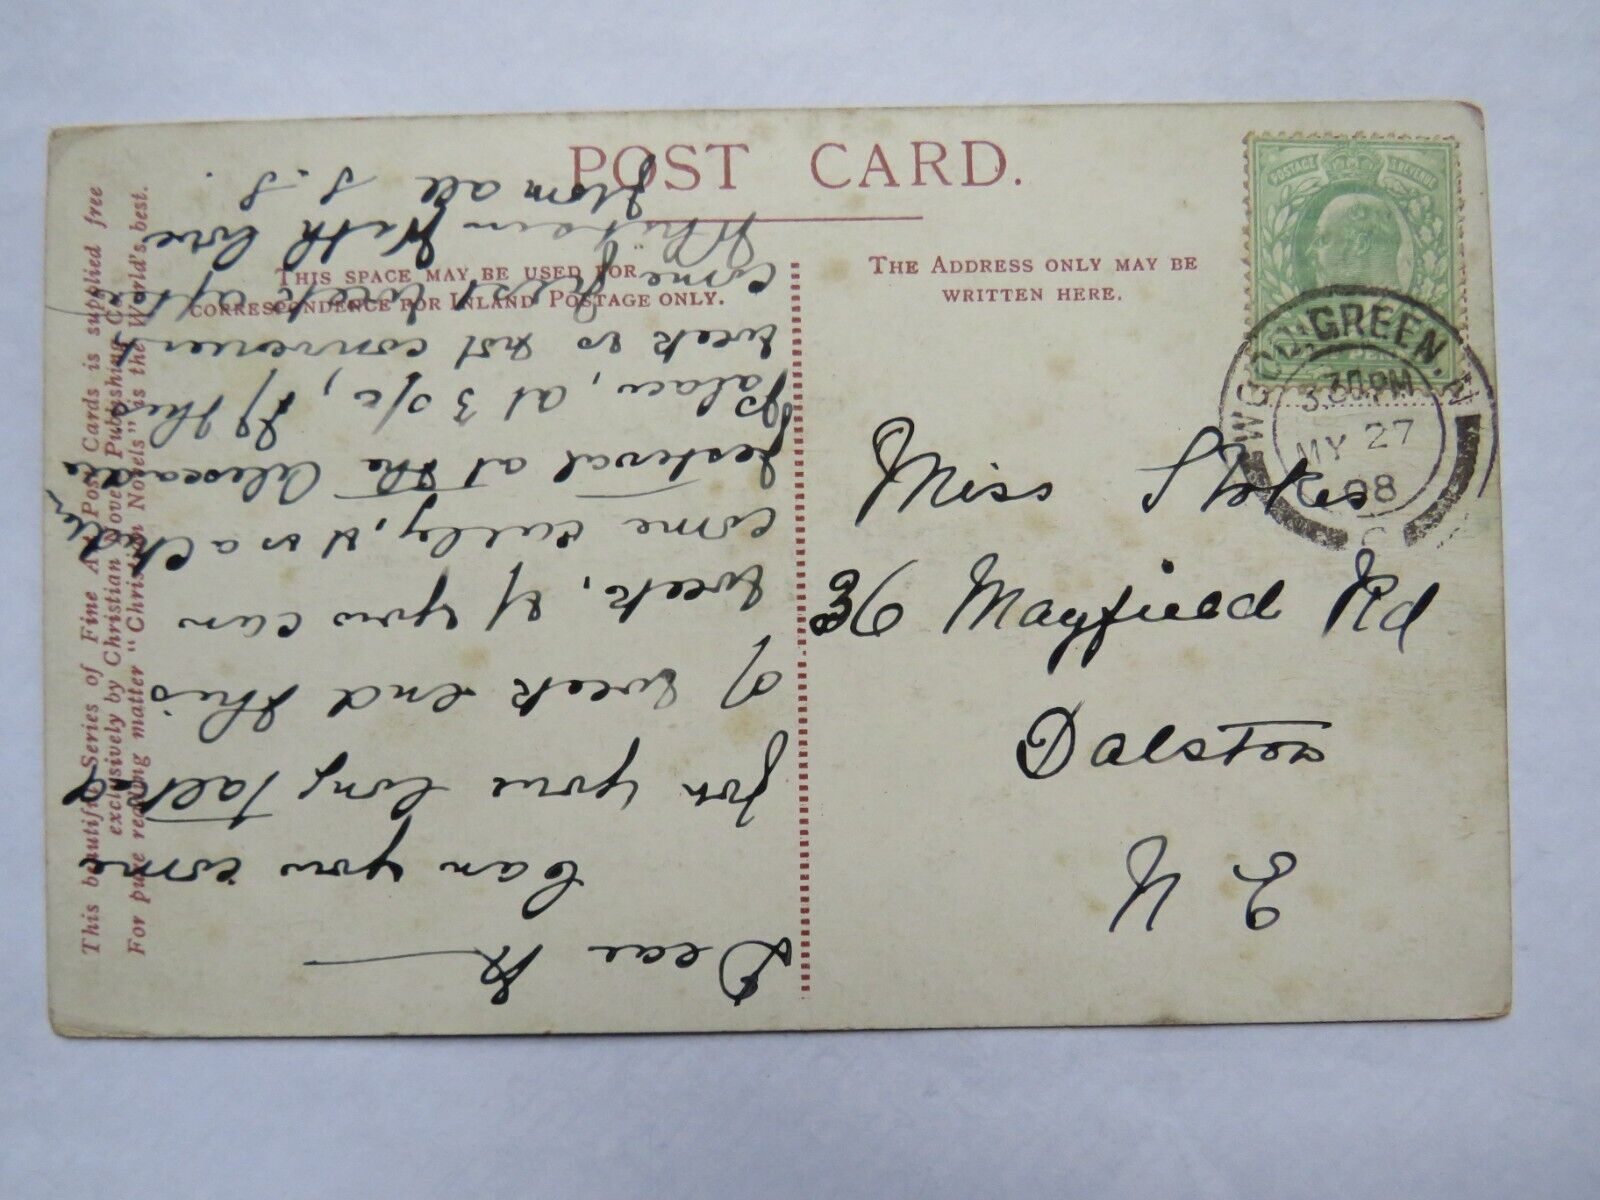 POST CARD.
THIS SPACE MAY BE USED FOR
CORRESPONDENCE FOR INLAND POSTAGE ONLY.
THE ADDRESS ONLY MAY BE
WRITTEN HERE.
This beautiful Series of Fine Art Post Cards is supplied free
exclusively by Christian Novels Publishing Co.
For pure reading matter "Christian Novels" is the World's best.
POSTAGE REVENUE
WOOD GREEN. N
3.30 PM
MY 27
08
Miss Stokes
36 Mayfield Rd
Dalston
N E
Dear
Can you come
for your long talked
of week end this
week, if you can
come early,
festival at the Alexandra
Palace, at 3 o/c, If this
week is not convenient
come first week after
Whitsun With love
from all J. S.